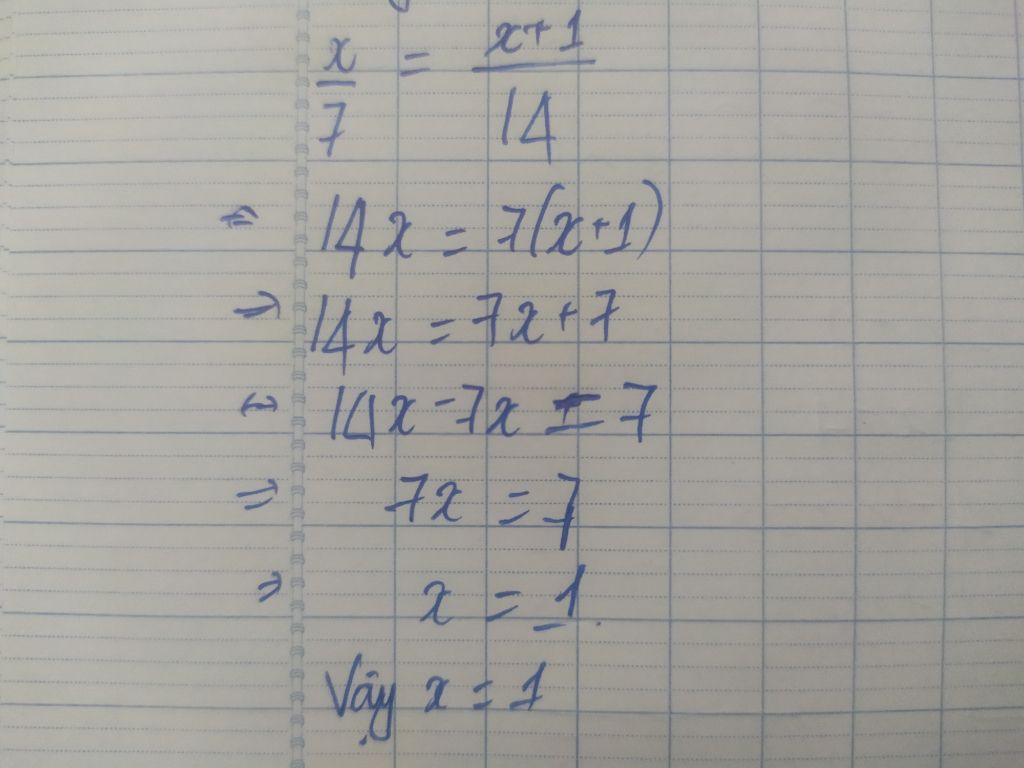 x/7 = x+1/14
⇒ 14x = 7(x+1)
⇒ 14x = 7x+7
⇒ 14x-7x = 7
⇒ 7x = 7
⇒ x = 1.
Vậy x = 1